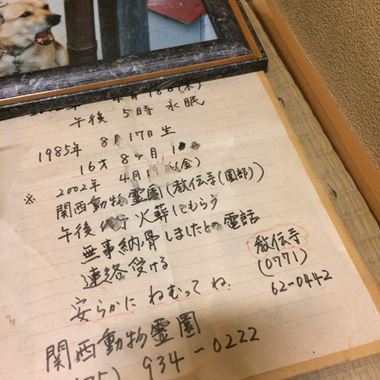 月18日(木)
午後 5時 永眠
1985年 8月17日生
16才8ヶ月
※ 2002年 4月 (金)
関西動物霊園(教伝寺(園部))
午後 火葬にてもらう
無事納骨しましたとの電話
連絡受ける
安らかに ねむってね
教伝寺
(0771)
62-0442
関西動物霊園
934-0222